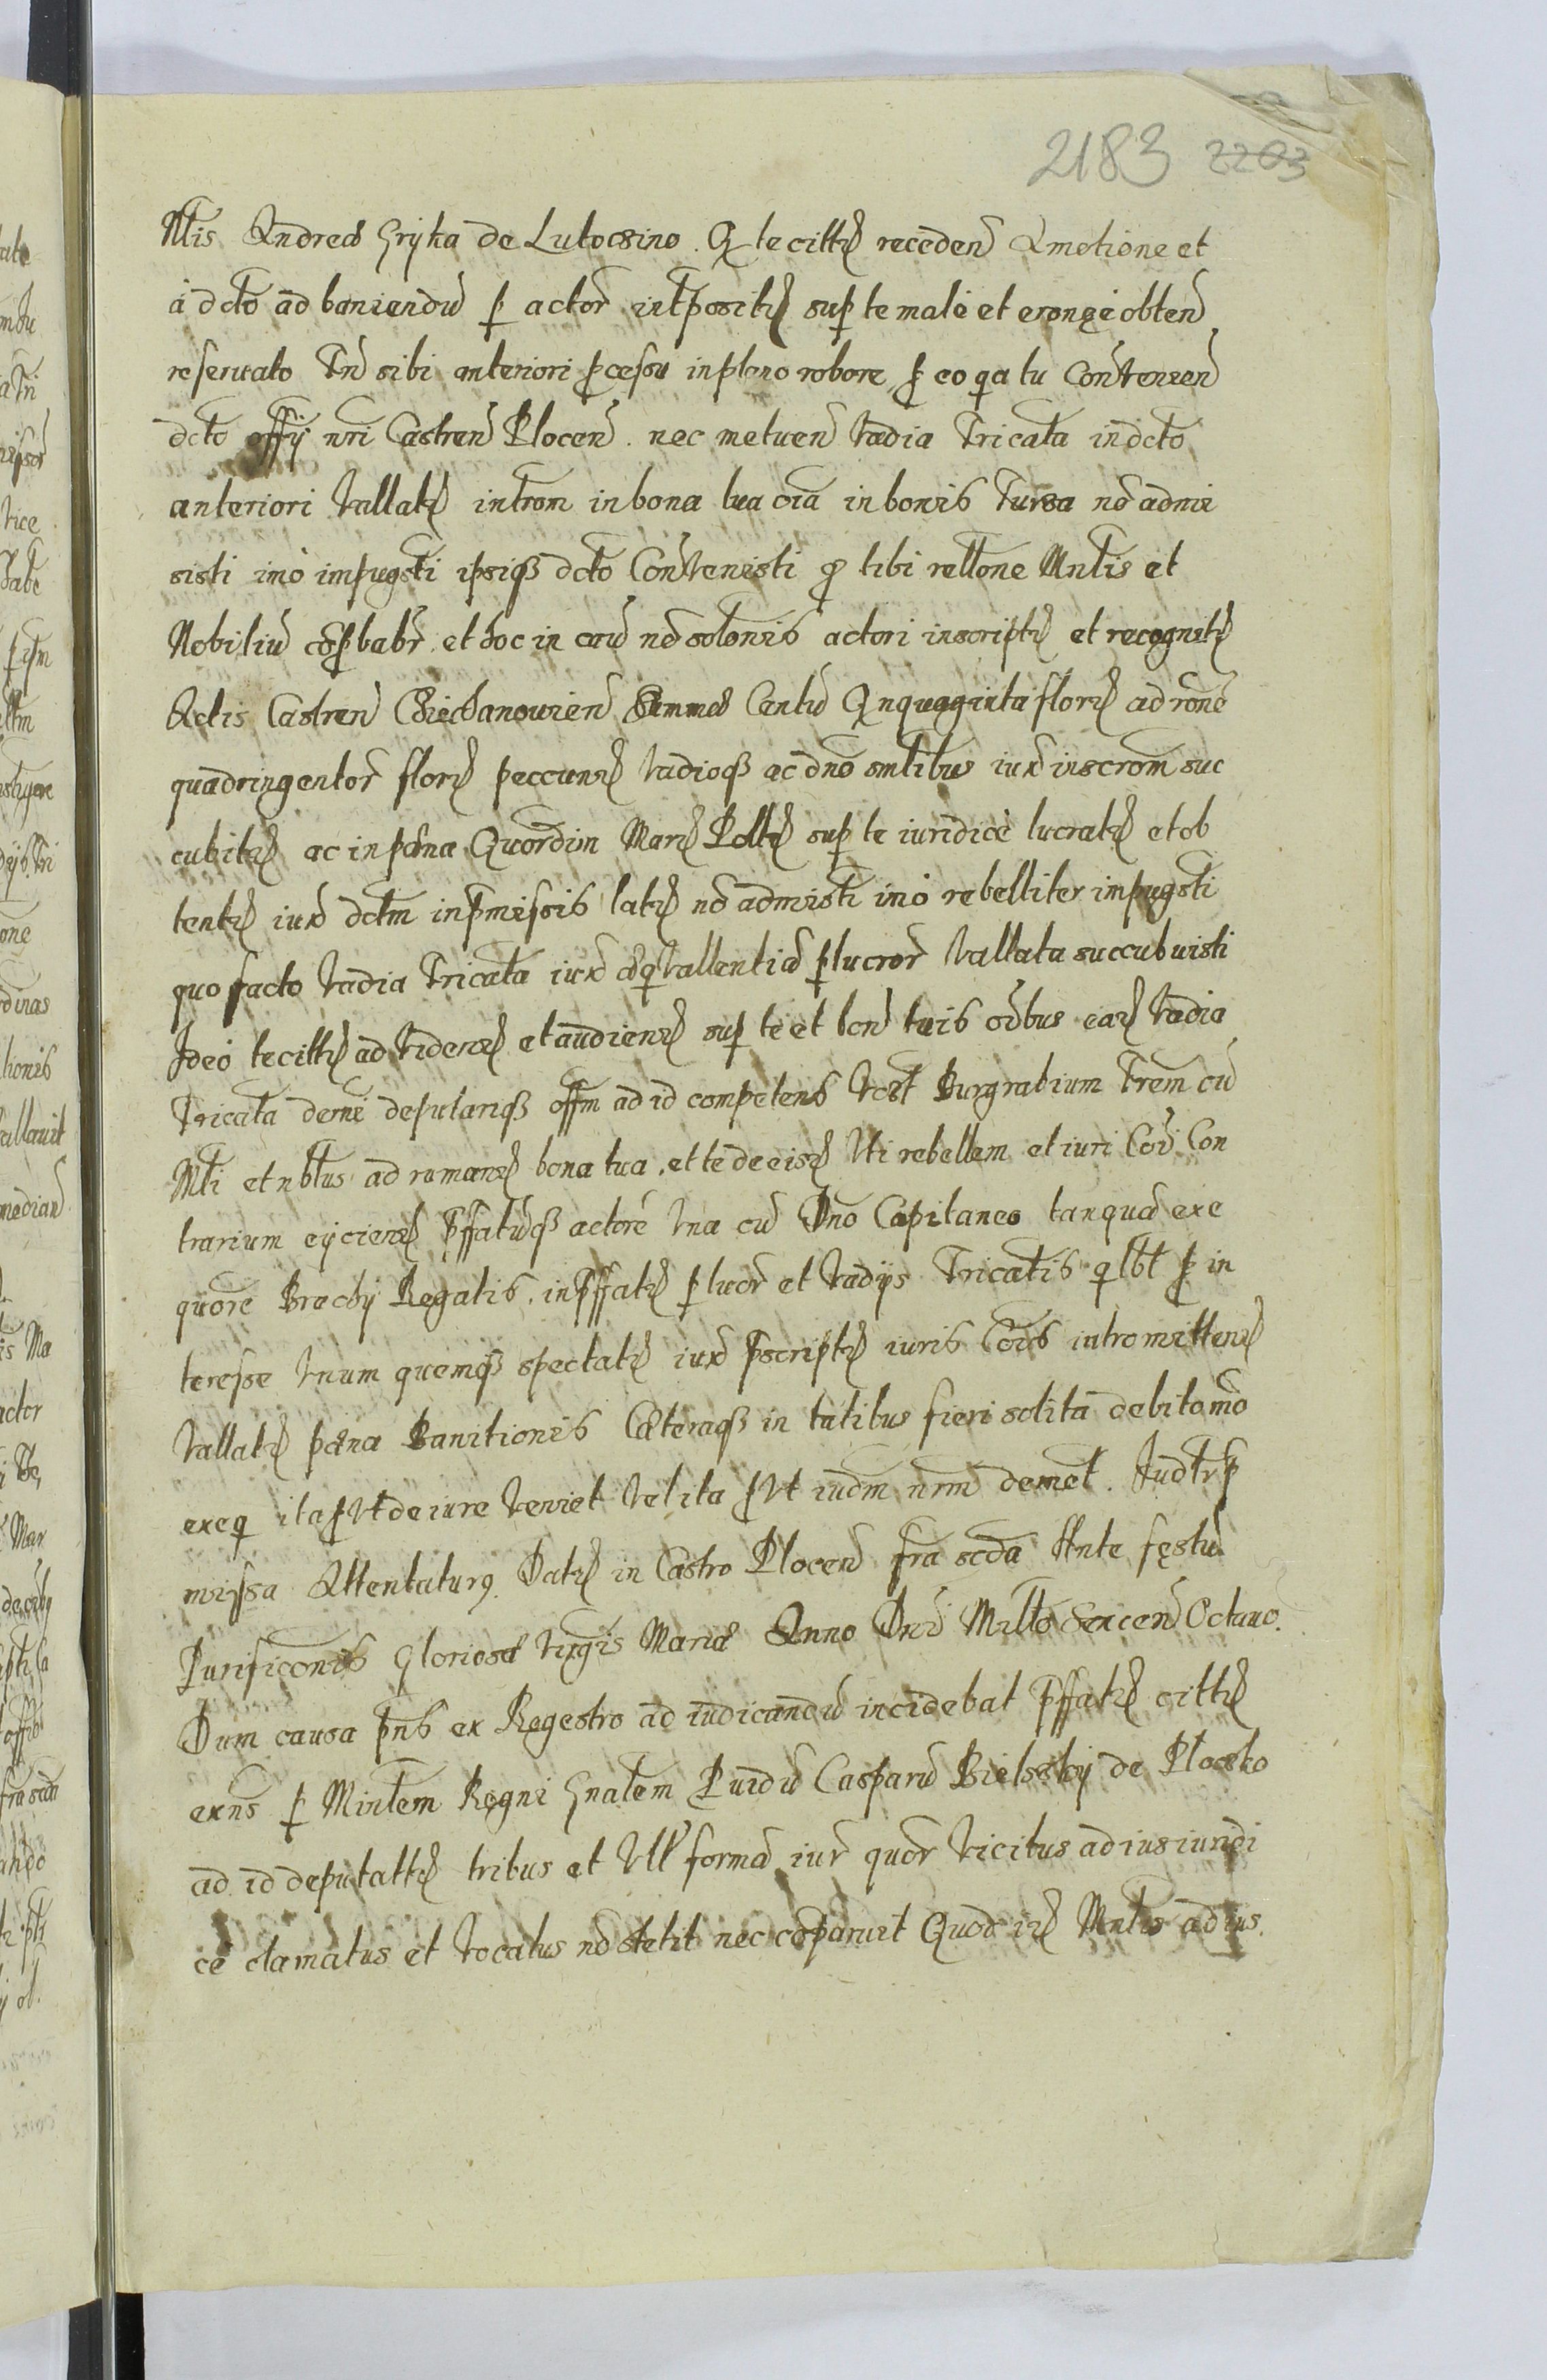 2183 2203
Mtis Andreæ Gryka de Lutocżino. Q te cittƷ receden Amotione et
à dcto ad baniendū p actor intpositƷ sup te malè et eroneę obten
reseruato Tn sibi anteriori pcessu in pleno robore p eo qa tu Contrauen
dcto offy nri Castren Plocen. nec metuen vadia Tricata in dcto
anteriori vallatƷ introm in bona tua oīa in bonis Tursa nō admi
sisti imò impugsti ipsiqƷ dcto Contrauenisti p tibi rellone Mntis et
Nobiliū cōpbabr et hoc in caū nō solonis actori inscriptƷ et recognitƷ
Actis Castren Cżiechanowien Summæ Centū Qnquaginta florƷ ad ronē
quadringentor florƷ peccunƷ vadioqƷ ac dno smlibus iux inscrom suc
cubitƷ ac in pæna Quordim MarƷ PolłƷ sup te iuridicè lucratƷ et ob
tentƷ iux dctm in pmissis latƷ nō admisti imò rebelliter impugsti
quo facto vadia Tricata iux æqvallentiā p lucror vallata succubuisti
Ideò te cittƷ ad videnƷ et audienƷ sup te et bon tuis oībus earƷ vadia
Tricata demi deputariqƷ offm ad id competens vcłt Burgrabium Trem cū
Mti et nbłus ad rumanƷ bona tua. et te de eisƷ vti rebellem et iuri Coi Con
trarium eycienƷ pffatūqƷ actorē vna cū Dno Capitaneo tanquā exe
quore Brachy Regalis. in pffatƷ p lucr et vadys Tricatis qlbt p in
teresse vnum quemqƷ spectatƷ iux pscriptƷ iuris Cōis intromittenƷ
vallatƷ pæna Banitionis CæteraqƷ in talibus fieri solita debito mō
exeq ita pvt de iure veniet vel ita pvt iudm nrm demet. Iudtr p
missa Attentaturꝰ. DatƷ in Castro Plocen fra scda Ante fęstū
Purificonis Gloriosæ Virgis Mariæ Anno Dni Millo Sexcen Octauo.
Dum causa pns ex Regestro ad iudicandū incidebat pffatƷ cittƷ
exns p Mintem Regni Gnałem Puidū Casparū Bielsky de Płocko
ad id deputattƷ tribus et vlt formā iur quor vicibus ad ius iuridi
cè clamatus et vocatus nō stetit nec cōparuit Quod isƷ Mntis ad ius.